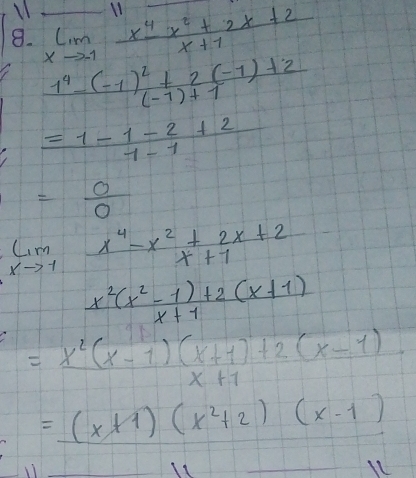 8. Lim x⁴ - x² + 2x + 2
x → -1 x + 1
1⁴ - (-1)² + 2(-1) + 2
(-1) + 1
= 1 - 1 - 2 + 2
1 - 1
= 0
0
Lim x⁴ - x² + 2x + 2
x → 1 x + 1
x²(x² - 1) + 2(x + 1)
x + 1
= x²(x - 1)(x + 1) + 2(x - 1)
x + 1
= (x + 1)(x² + 2)(x - 1)